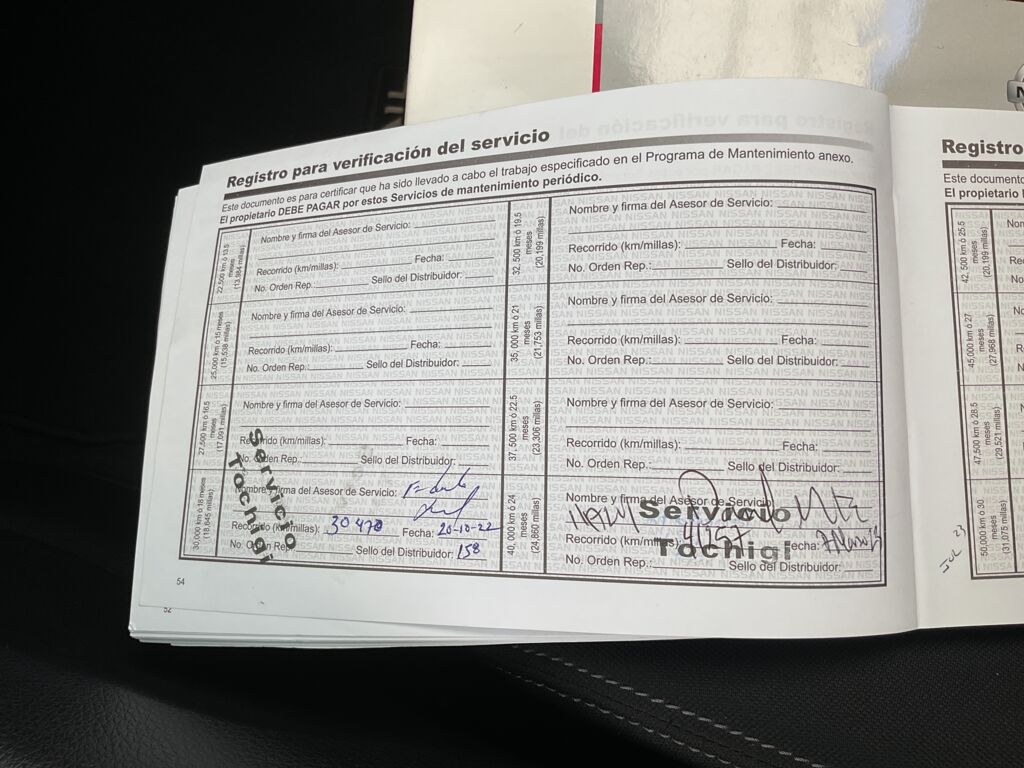 Registro para verificación del servicio
Este documento es para certificar que ha sido llevado a cabo el trabajo especificado en el Programa de Mantenimiento anexo.
El propietario DEBE PAGAR por estos Servicios de mantenimiento periódico.
22,500 km ó 13.5
meses
(13,984 millas)
Nombre y firma del Asesor de Servicio:
Recorrido (km/millas): Fecha:
No. Orden Rep.: Sello del Distribuidor:
25,000 km ó 15 meses
(15,538 millas)
Nombre y firma del Asesor de Servicio:
Recorrido (km/millas): Fecha:
No. Orden Rep.: Sello del Distribuidor:
27,500 km ó 16.5
meses
(17,091 millas)
Nombre y firma del Asesor de Servicio:
Recorrido (km/millas): Fecha:
No. Orden Rep.: Sello del Distribuidor:
30,000 km ó 18 meses
(18,645 millas)
Nombre y firma del Asesor de Servicio:
Recorrido (km/millas): 30470 Fecha: 20-10-22
No. Orden Rep.: Sello del Distribuidor: 158
Servicio
Tochigi
32,500 km ó 19.5
meses
(20,199 millas)
Nombre y firma del Asesor de Servicio:
Recorrido (km/millas): Fecha:
No. Orden Rep.: Sello del Distribuidor:
35,000 km ó 21
meses
(21,753 millas)
Nombre y firma del Asesor de Servicio:
Recorrido (km/millas): Fecha:
No. Orden Rep.: Sello del Distribuidor:
37,500 km ó 22.5
meses
(23,306 millas)
Nombre y firma del Asesor de Servicio:
Recorrido (km/millas): Fecha:
No. Orden Rep.: Sello del Distribuidor:
40,000 km ó 24
meses
(24,860 millas)
Nombre y firma del Asesor de Servicio
Recorrido (km/millas): Fecha:
No. Orden Rep.: Sello del Distribuidor:
Servicio
Tochigi
54
52
Registro
Este documento
El propietario
42,500 km ó 25.5
meses
(20,199 millas)
45,000 km ó 27
meses
(27,968 millas)
47,500 km ó 28.5
meses
(29,521 millas)
50,000 km ó 30
meses
(31,075 millas)